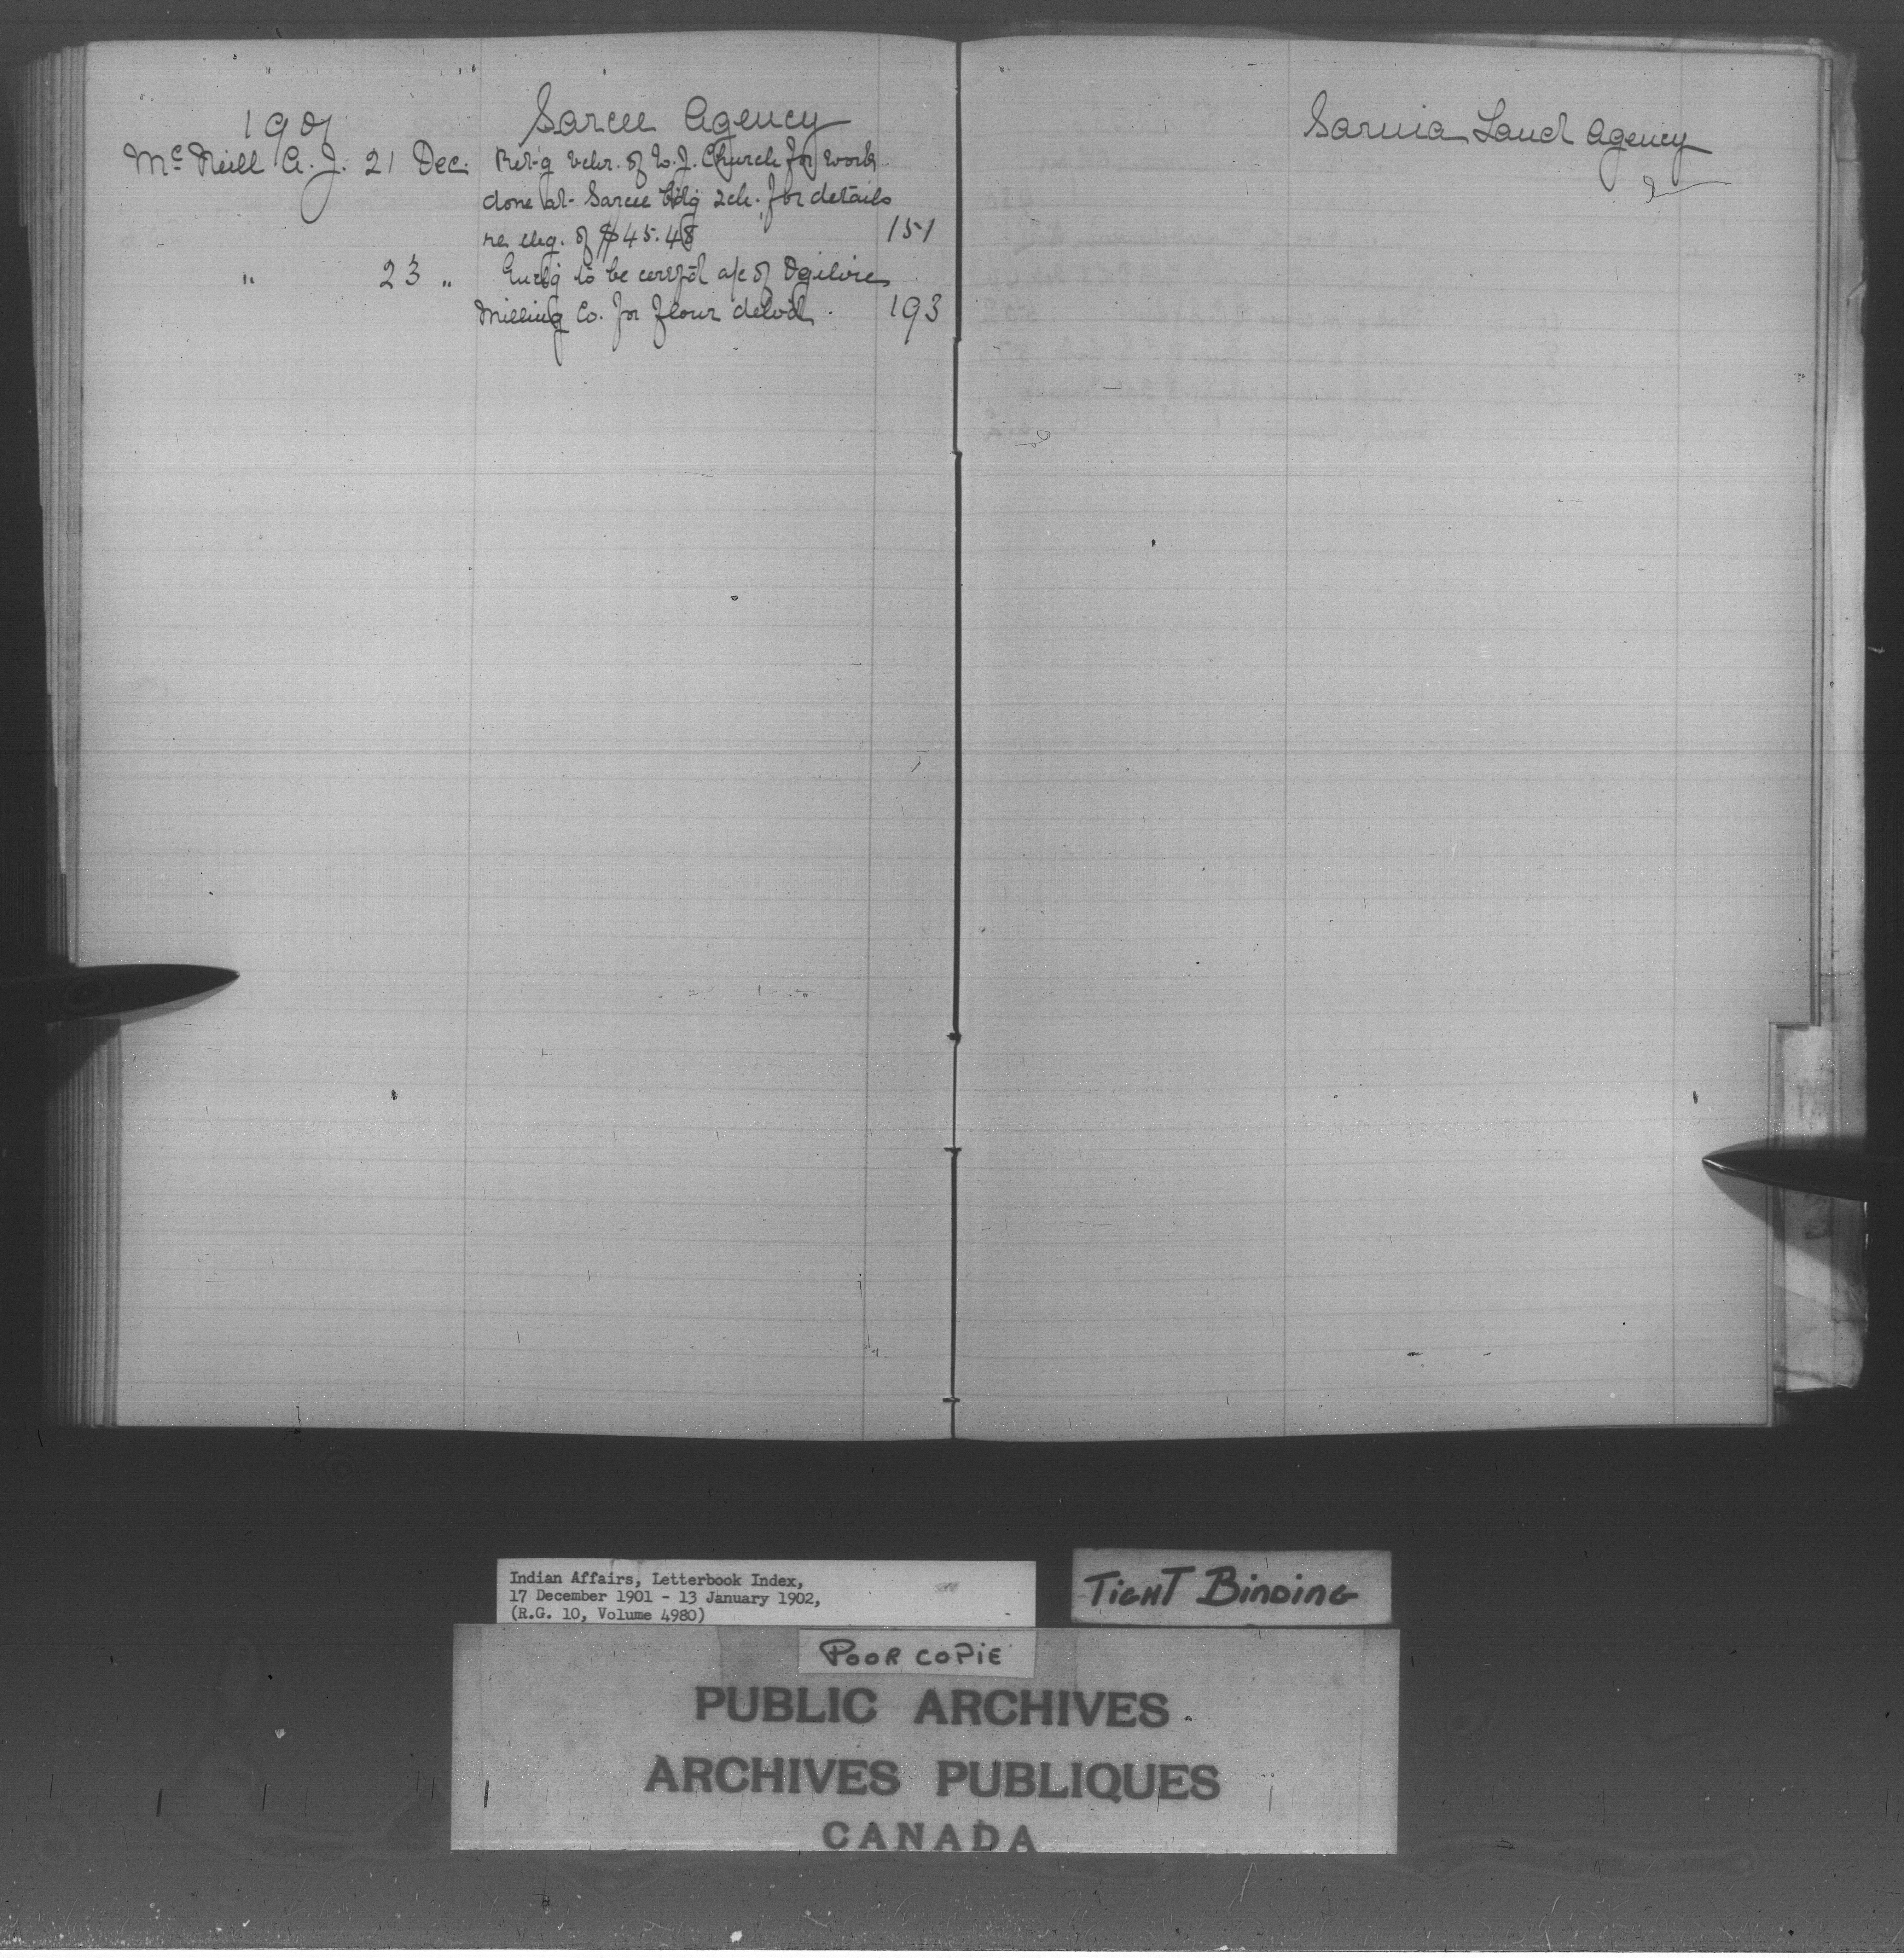 1901 Sarcee Agency
McNeill A. J. 21 Dec. Ret'g vchr. of W. J. Church for work
done at Sarcee bdg sch. for details
re chg. of $45.48 151
" 23 " Enclg to be certf'd a/c of Ogilvie
Milling Co. for flour delvd. 193
Sarnia Land Agency
Indian Affairs, Letterbook Index,
17 December 1901 - 13 January 1902,
(R.G. 10, Volume 4980)
TIGHT BINDING
POOR COPIE
PUBLIC ARCHIVES
ARCHIVES PUBLIQUES
CANADA